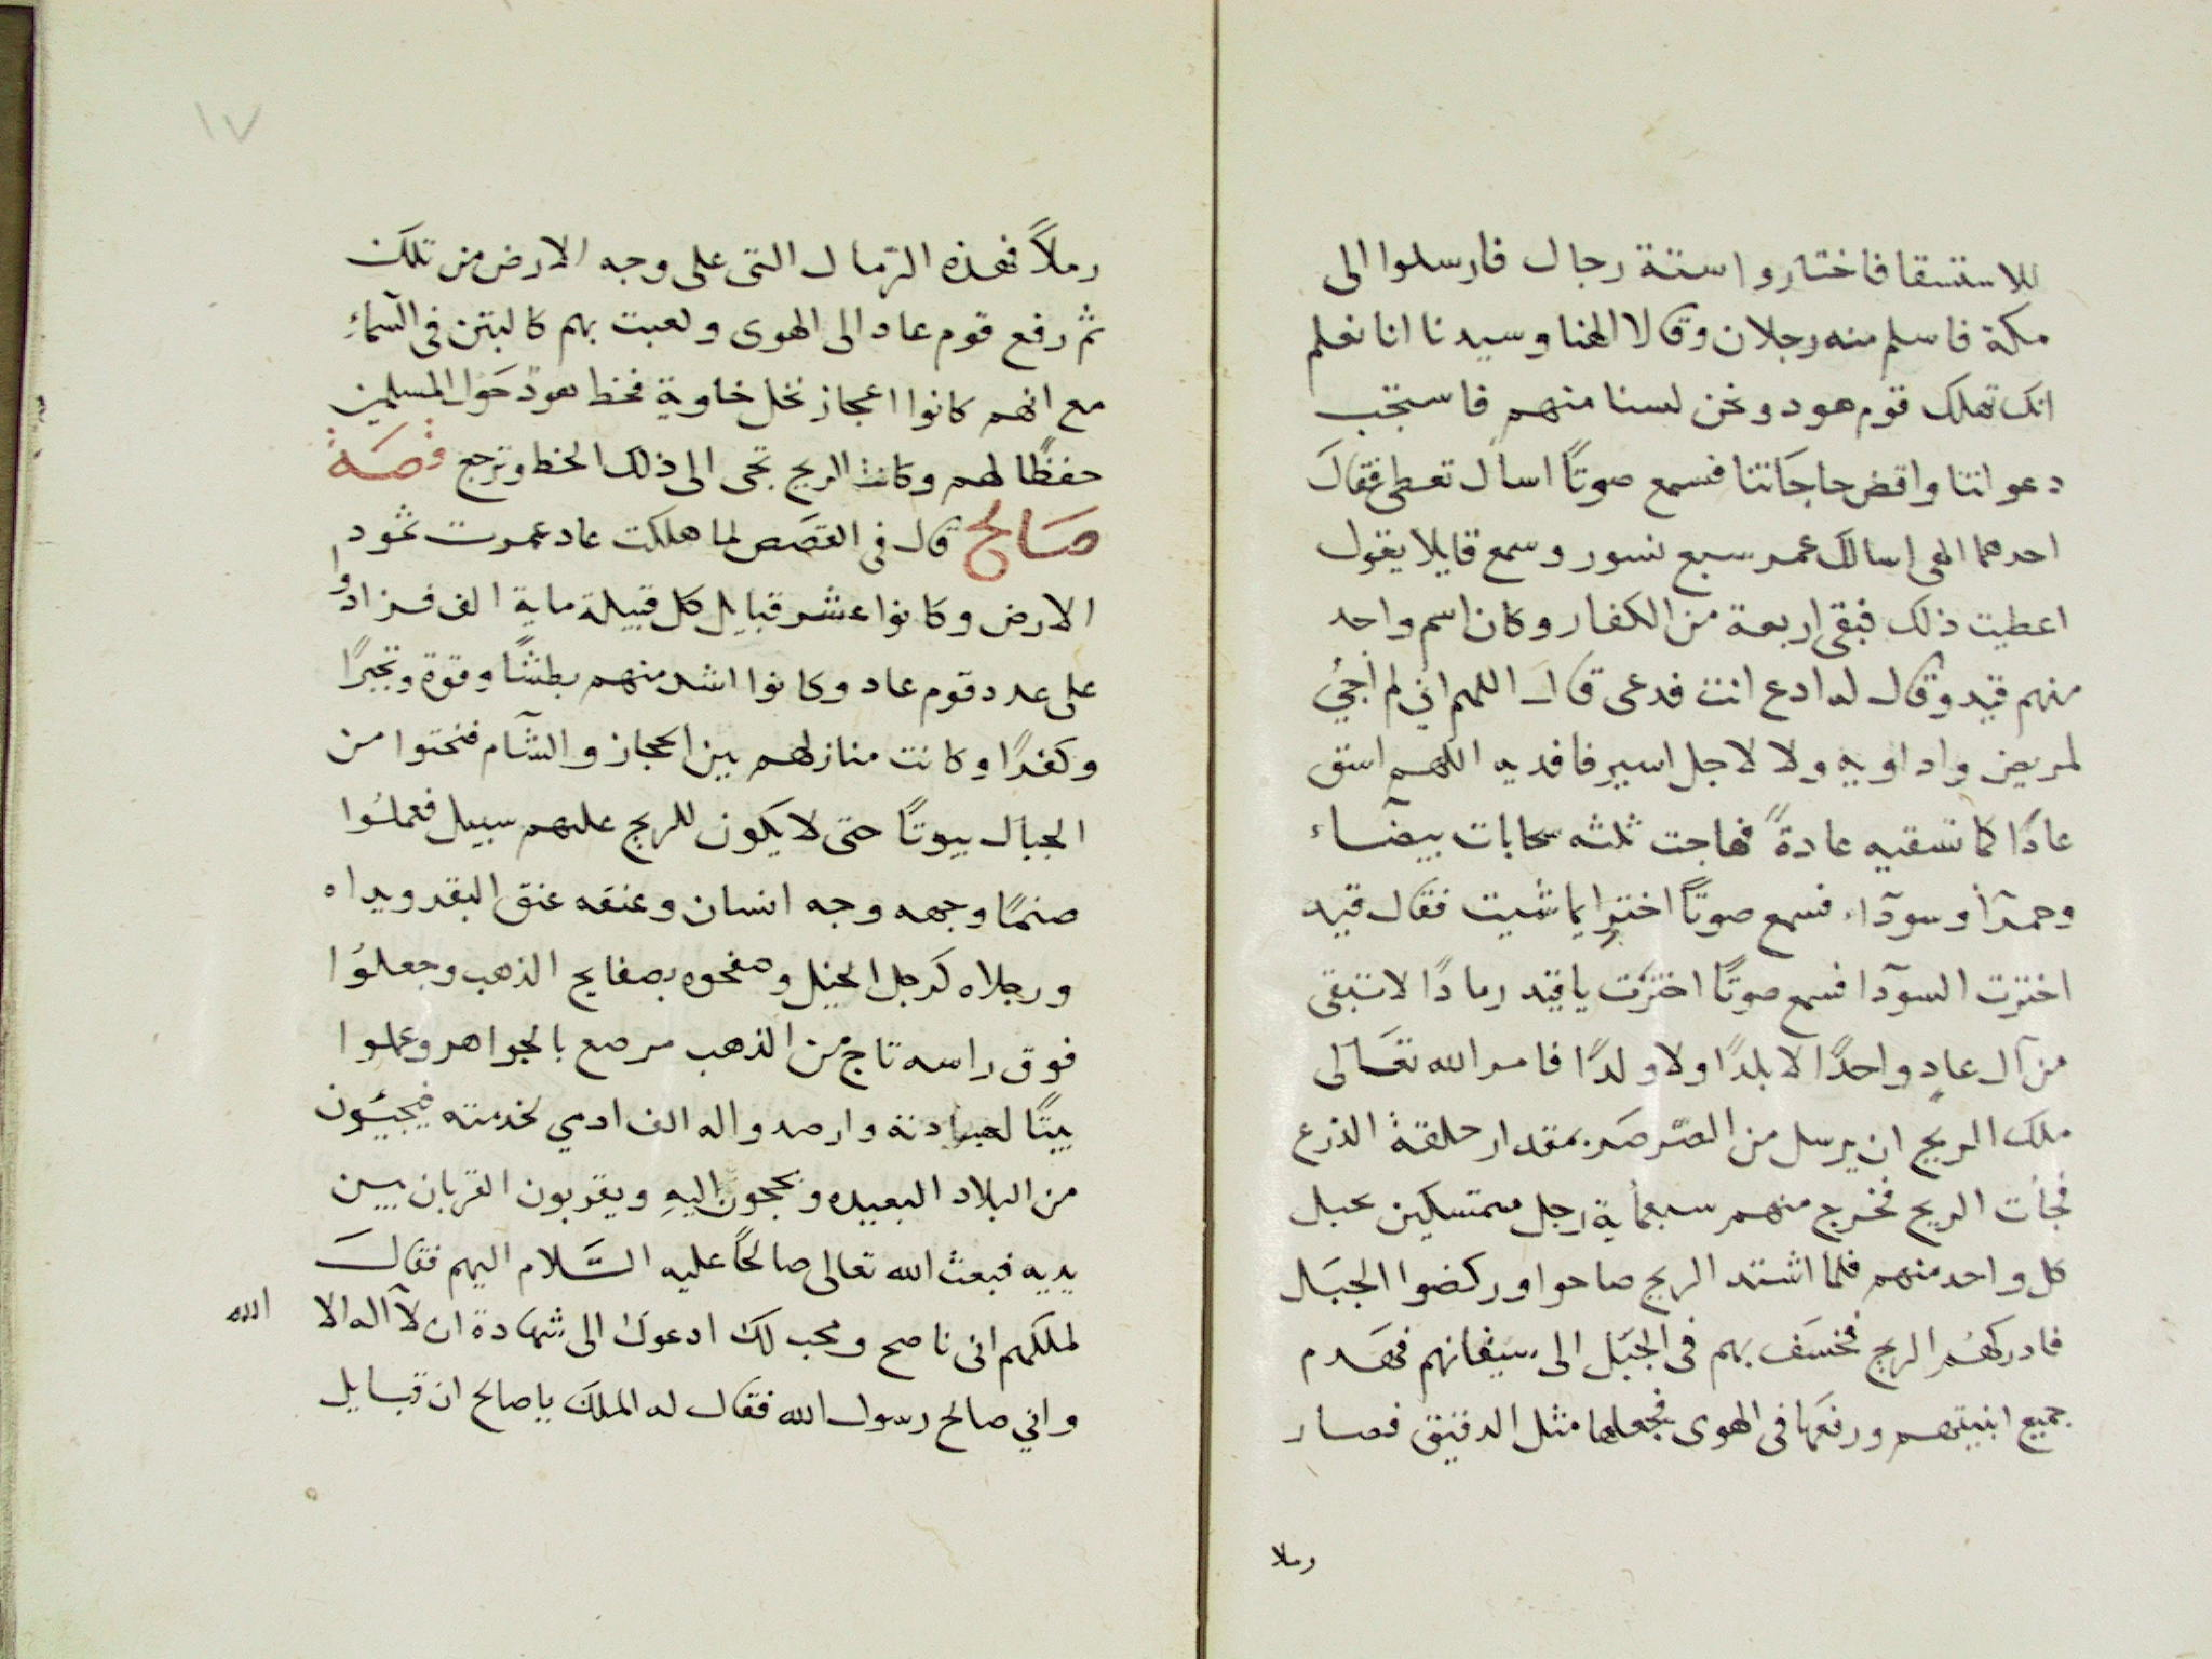 للاستسقا فاختاروا ستة رجال فارسلوا الى
مكة فاسلم منه رجلان وقالا الهنا وسيدنا انا نعلم
انك تهلك قوم هود ونحن لسنا منهم فاستجب
دعواتنا واقض حاجاتنا فسمع صوتًا اسال تعطى فقال
احدهما الهى اسالك عمر سبع نسور وسمع قايلا يقول
اعطيت ذلك فبقى اربعة من الكفار وكان اسم واحد
منهم قيد وقال له ادع انت فدعى قال اللهم اني لم اجئ
لمريض واداويه ولا لاجل اسير فافديه اللهم اسق
عادًا كما تسقيه عادةً فهاجت ثلثه سحابات بيضآء
وحمرآ وسودآء فسمع صوتًا اختر ايما شيت فقال قيد
اخترت السودآ فسمع صوتًا اخترت ياقيد رمادًا لا تبقى
من آل عاد واحدًا لا بلدًا ولا ولدًا فامر الله تعالى
ملك الريح ان يرسل من الصرصر بمقدار حلقة الذرع
فجأت الريح فخرج منهم سبعمأية رجل متمسكين بحبل
كل واحد منهم فلما اشتد الريح صاحوا وركضوا الجبل
فادركهم الريح فخسف بهم فى الجبل الى سيقانهم فهدم
جميع ابنيتهم ورفعها فى الهوى فجعلها مثل الدقيق فصار
رملا
١٧
رملاً فهذه الرمال التى على وجه الارض من تلك
ثم رفع قوم عاد الى الهوى ولعبت بهم كالتبن فى السمآء
مع انهم كانوا اعجاز نخل خاوية فخط هود حول المسلمين
حفظًا لهم وكانت الريح تجى الى ذلك الخط وترجع قصة
صالح قال فى القصص لما هلكت عاد عمرت ثمود
الارض وكانوا عشر قبايل كل قبيلة ماية الف فزادوا
على عدد قوم عاد وكانوا اشد منهم بطشًا وقوة وتجبرًا
وكفرًا وكانت منازلهم بين الحجاز والشآم فنحتوا من
الجبال بيوتًا حتى لا يكون للريح عليهم سبيل فعملوا
صنمًا وجهه وجه انسان وعنقه عنق البقر ويداه
ورجلاه كرجل الخيل وصفحوه بصفايح الذهب وجعلوا
فوق راسه تاج من الذهب مرصع بالجواهر وعملوا
بيتًا لعبادته وارصدوا له الف ادمي لخدمته فيجيئون
من البلاد البعيده ويحجون اليه ويقربون القربان بين
يديه فبعث الله تعالى صالحًا عليه السلام اليهم فقال
لملكهم انى ناصح ومحب لك ادعوك الى شهادة ان لآ اله الا الله
واني صالح رسول الله فقال له الملك ياصالح ان قبايل